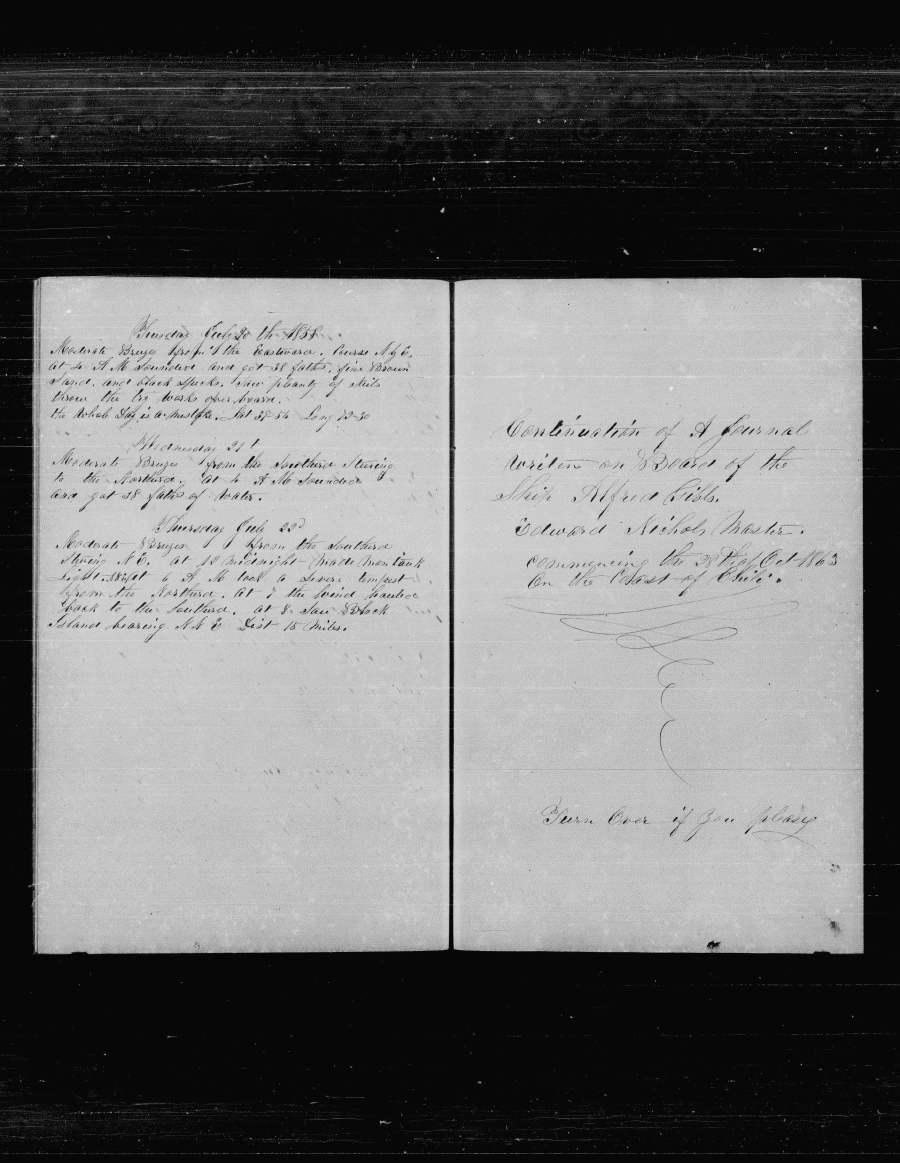 Tuesday July 20 th 1858
Moderate Breezes from the Eastward. Course N by E.
at 4 A M Sounded and got 38 faths. fine Brown
Sand. and black Specks. Saw planty of Sails
threw the try works over board.
the Whole Day is a mistake. Lat 38-54 Long 72-30
Wednesday 21st
Moderate Brezes from the Southerd Stering
to the Northerd. at 4 A M Sounded
and got 38 faths of Water.
Thursday July 22d
Moderate Brezes from the Southerd
Stering N E. at 12 midnight made Montauk
Light. at 6 A M took a Severe tempest
from the Northerd. at 7 the wind hauled
back to the Southerd. at 8 Saw Block
Island bearing N N E Dist 15 Miles.
Continuation of A Journal
Writen on Board of the
Ship Alfred Gibbs.
Edward Nichols Master.
commencing the 28th of Oct 1863
On the Coast of Chili.
Turn Over if you please